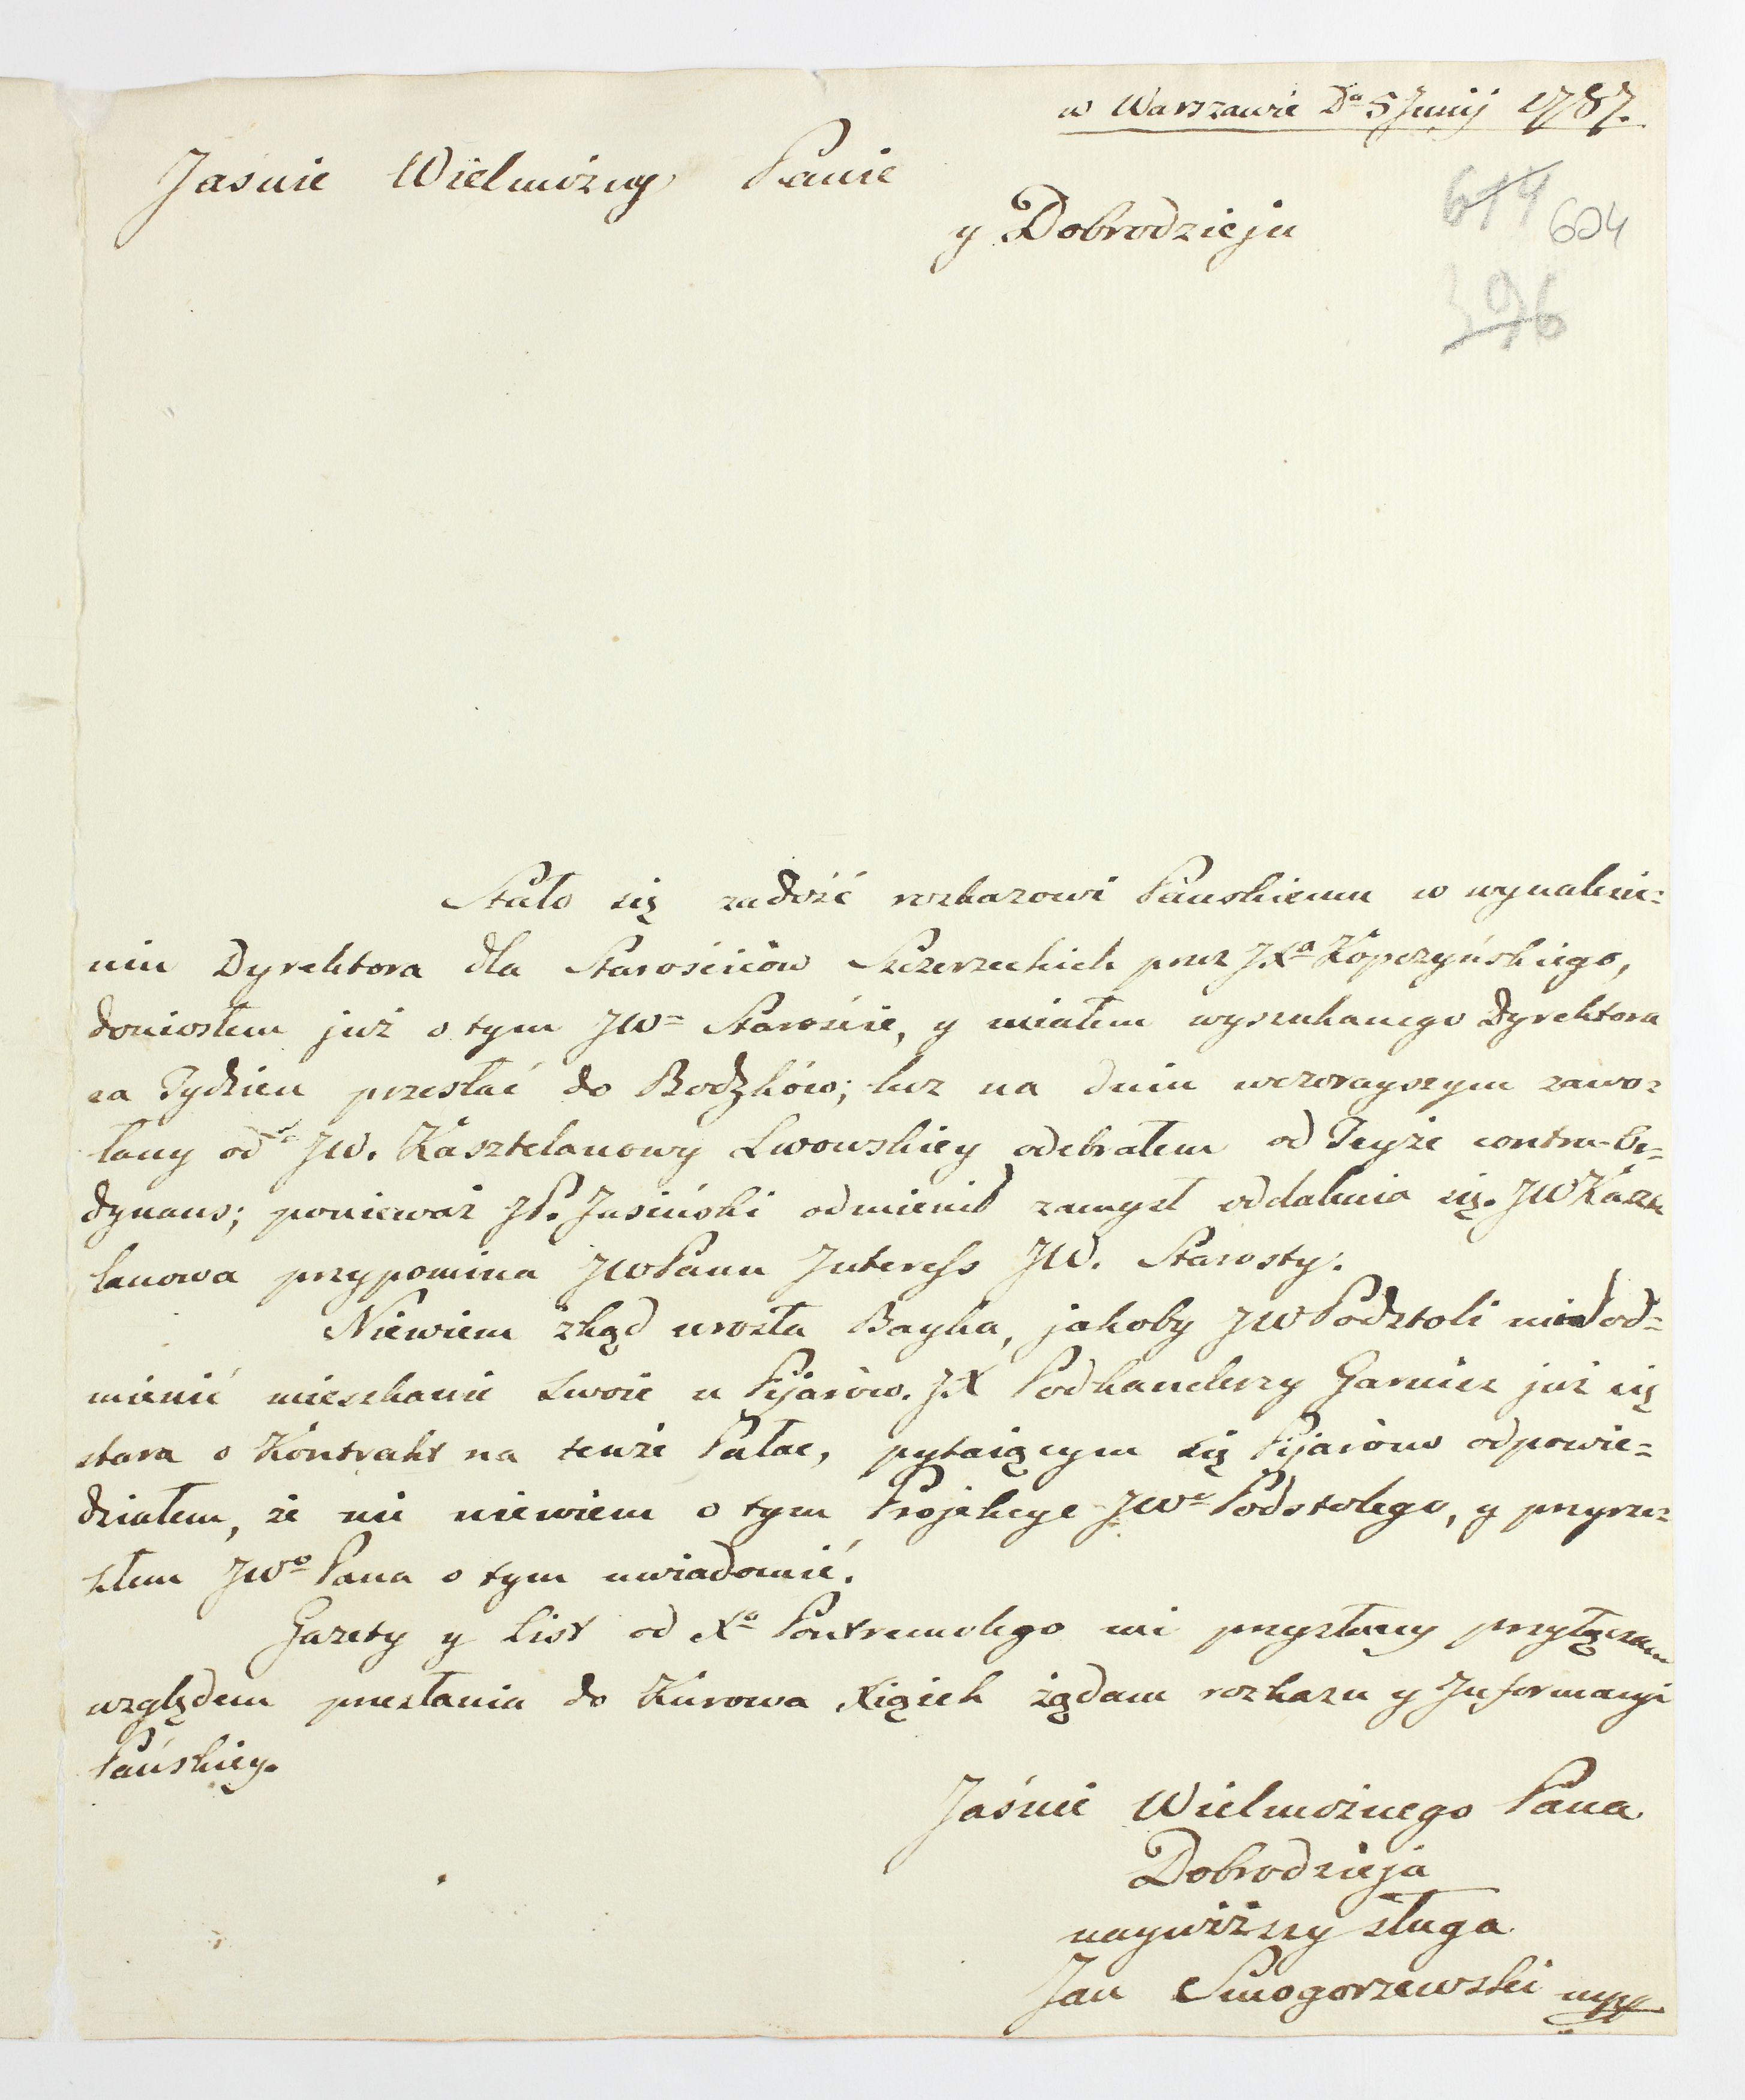 w Warszawie Da 5 Junij 1787.
Jasnie Wielmożny Panie
y Dobrodzieju
614
604
396
Stało się zadość rozkazowi Panskiemu w wynalezie=
niu Dyrektora dla Starościców Szczerzeckich przez JXa Kopczyńskiego,
doniosłem już o tym JWo Starościе, y miałem wyszukanego Dyrektora
za Tydzien przesłać do Bodzków; lecz na dniu wczorayszym zawo=
łany od JW. Kasztelanowy Lwowskiey odebrałem od Teyże contra-Or=
dynans; ponieważ JP. Jasiński odmienił zamysł oddalenia się. JW Kaszte
lanowa przypomina JWPanu Interess JW. Starosty.
Niewiem zkąd urosła Bayka, jakoby JW Podstoli miał od=
mienić mieszkanie swoie u Pijarów. JX Podkanclerzy Garnier już się
stara o Kontrakt na tenże Pałac, pytaiącym się Pijarom odpowie=
działem, że nic niewiem o tym Projekcye JWo Podstolego, y przyrze=
kłem JWo Pana o tym uwiadomić.
Gazety y List od Xa Pontremolego mi przysłany przyłączam
względem przesłania do Kurowa Xiąiek żądam rozkazu y Informacyi
Pańskiey.
Jaśnie Wielmożnego Pana
Dobrodzieja
nayniższy sługa
Jan Smogorzewski mpp